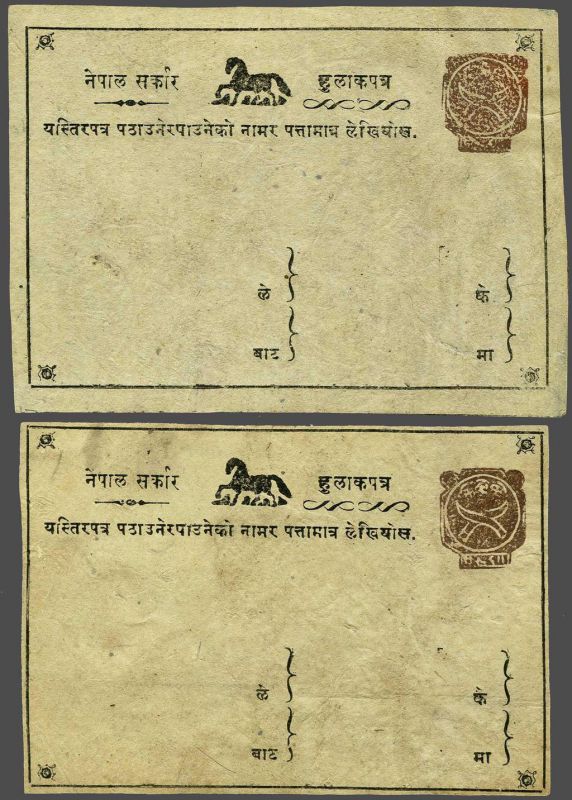 नेपाल सर्कार हुलाकपत्र
यस्तिरपत्र पठाउनेरपाउनेको नामर पत्तामात्र लेखियोस.
ले के
बाट मा
नेपाल सर्कार हुलाकपत्र
यस्तिरपत्र पठाउनेरपाउनेको नामर पत्तामात्र लेखियोस.
ले के
बाट मा